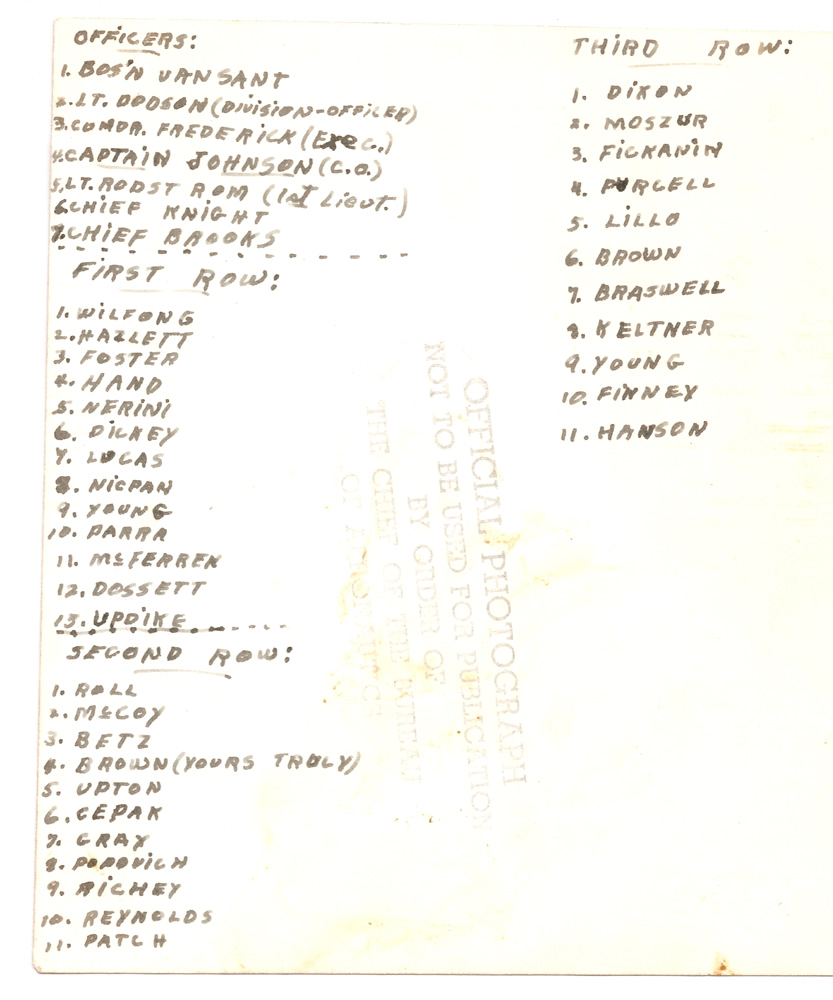 OFFICERS:
1. BOS'N VANSANT
2. LT. DODSON (DIVISION-OFFICER)
3. COMDR. FREDERICK (Exec.)
4. CAPTAIN JOHNSON (C.O.)
5. LT. RODSTROM (1st Lieut.)
6. CHIEF KNIGHT
7. CHIEF BROOKS
FIRST ROW:
1. WILFONG
2. HAZLETT
3. FOSTER
4. HAND
5. NERINI
6. DICKEY
7. LUCAS
8. NICPAN
9. YOUNG
10. PARRA
11. McFERREN
12. DOSSETT
13. UPDIKE
SECOND ROW:
1. ROLL
2. McCOY
3. BETZ
4. BROWN (YOURS TRULY)
5. UPTON
6. CEPAK
7. GRAY
8. POPOVICH
9. RICHEY
10. REYNOLDS
11. PATCH
THIRD ROW:
1. DIXON
2. MOSZUR
3. FICKANIN
4. PURCELL
5. LILLO
6. BROWN
7. BRASWELL
8. KELTNER
9. YOUNG
10. FINNEY
11. HANSON
OFFICIAL PHOTOGRAPH
NOT TO BE USED FOR PUBLICATION
BY ORDER OF
THE CHIEF OF THE BUREAU
OF